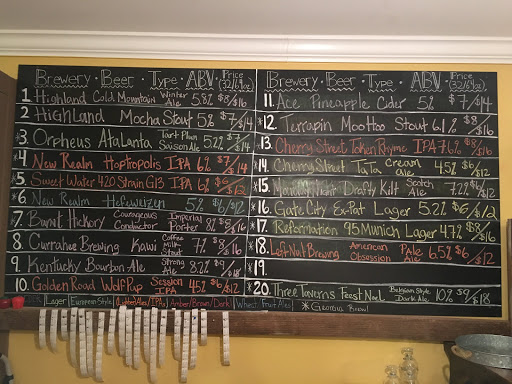 Brewery · Beer · Type · ABV · Price (32/64oz)
1. Highland Cold Mountain Winter Ale 5.8% $8/$16
2. Highland Mocha Stout 5% $8/$14
*3. Orpheus Atalanta Tart Plum Saison Ale 5.2% $7/$14
*4. New Realm Hoptropolis IPA 6% $7/$14
*5. Sweet Water 420 Strain G13 IPA 6% $6/$12
*6. New Realm Hefeweizen 5% $6/$12
*7. Burnt Hickory Courageous Conductor Imperial Porter 8% $8/$16
*8. Currahee Brewing Kiawi Coffee Milk Stout 7% $8/$16
9. Kentucky Bourbon Ale Strong Ale 8.2% $9/$18
10. Golden Road Wolf Pup Session IPA 4.5% $8/$16
Lager European Style Amber/Brown/Dark Wheat Fruit Ale
Brewery · Beer · Type · ABV · Price (32/64oz)
11. Ace Pineapple Cider 5% $7/$14
*12. Terrapin MooHoo Stout 6.1% $8/$16
*13. Cherry Street Token Rhyme IPA 7.6% $8/$16
*14. Cherry Street TaTa Cream Ale 4.5% $6/$12
*15. Drafty Kilt Scotch Ale 7.2% $6/$12
*16. Gate City Ex-Pat Lager 5.2% $6/$12
*17. Reformation 95 Munich Lager 4.7% $8/$16
*18. Left Nut Brewing American Obsession Pale Ale 6.5% $6/$12
*19.
*20. Three Taverns Feest Noel Belgian Style Dark Ale 10% $9/$18
*Georgia Brew!